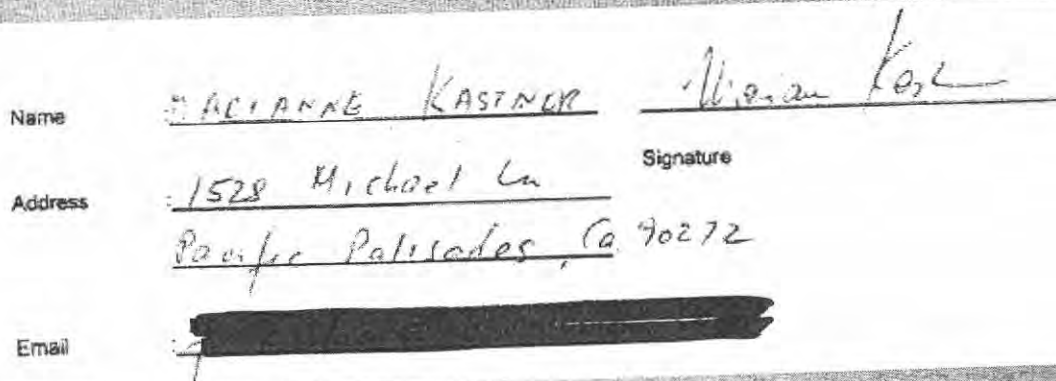 Name MARIANNE KASTNER
Signature
Address : 1528 Michael Ln
Pacific Palisades, Ca. 90272
Email :